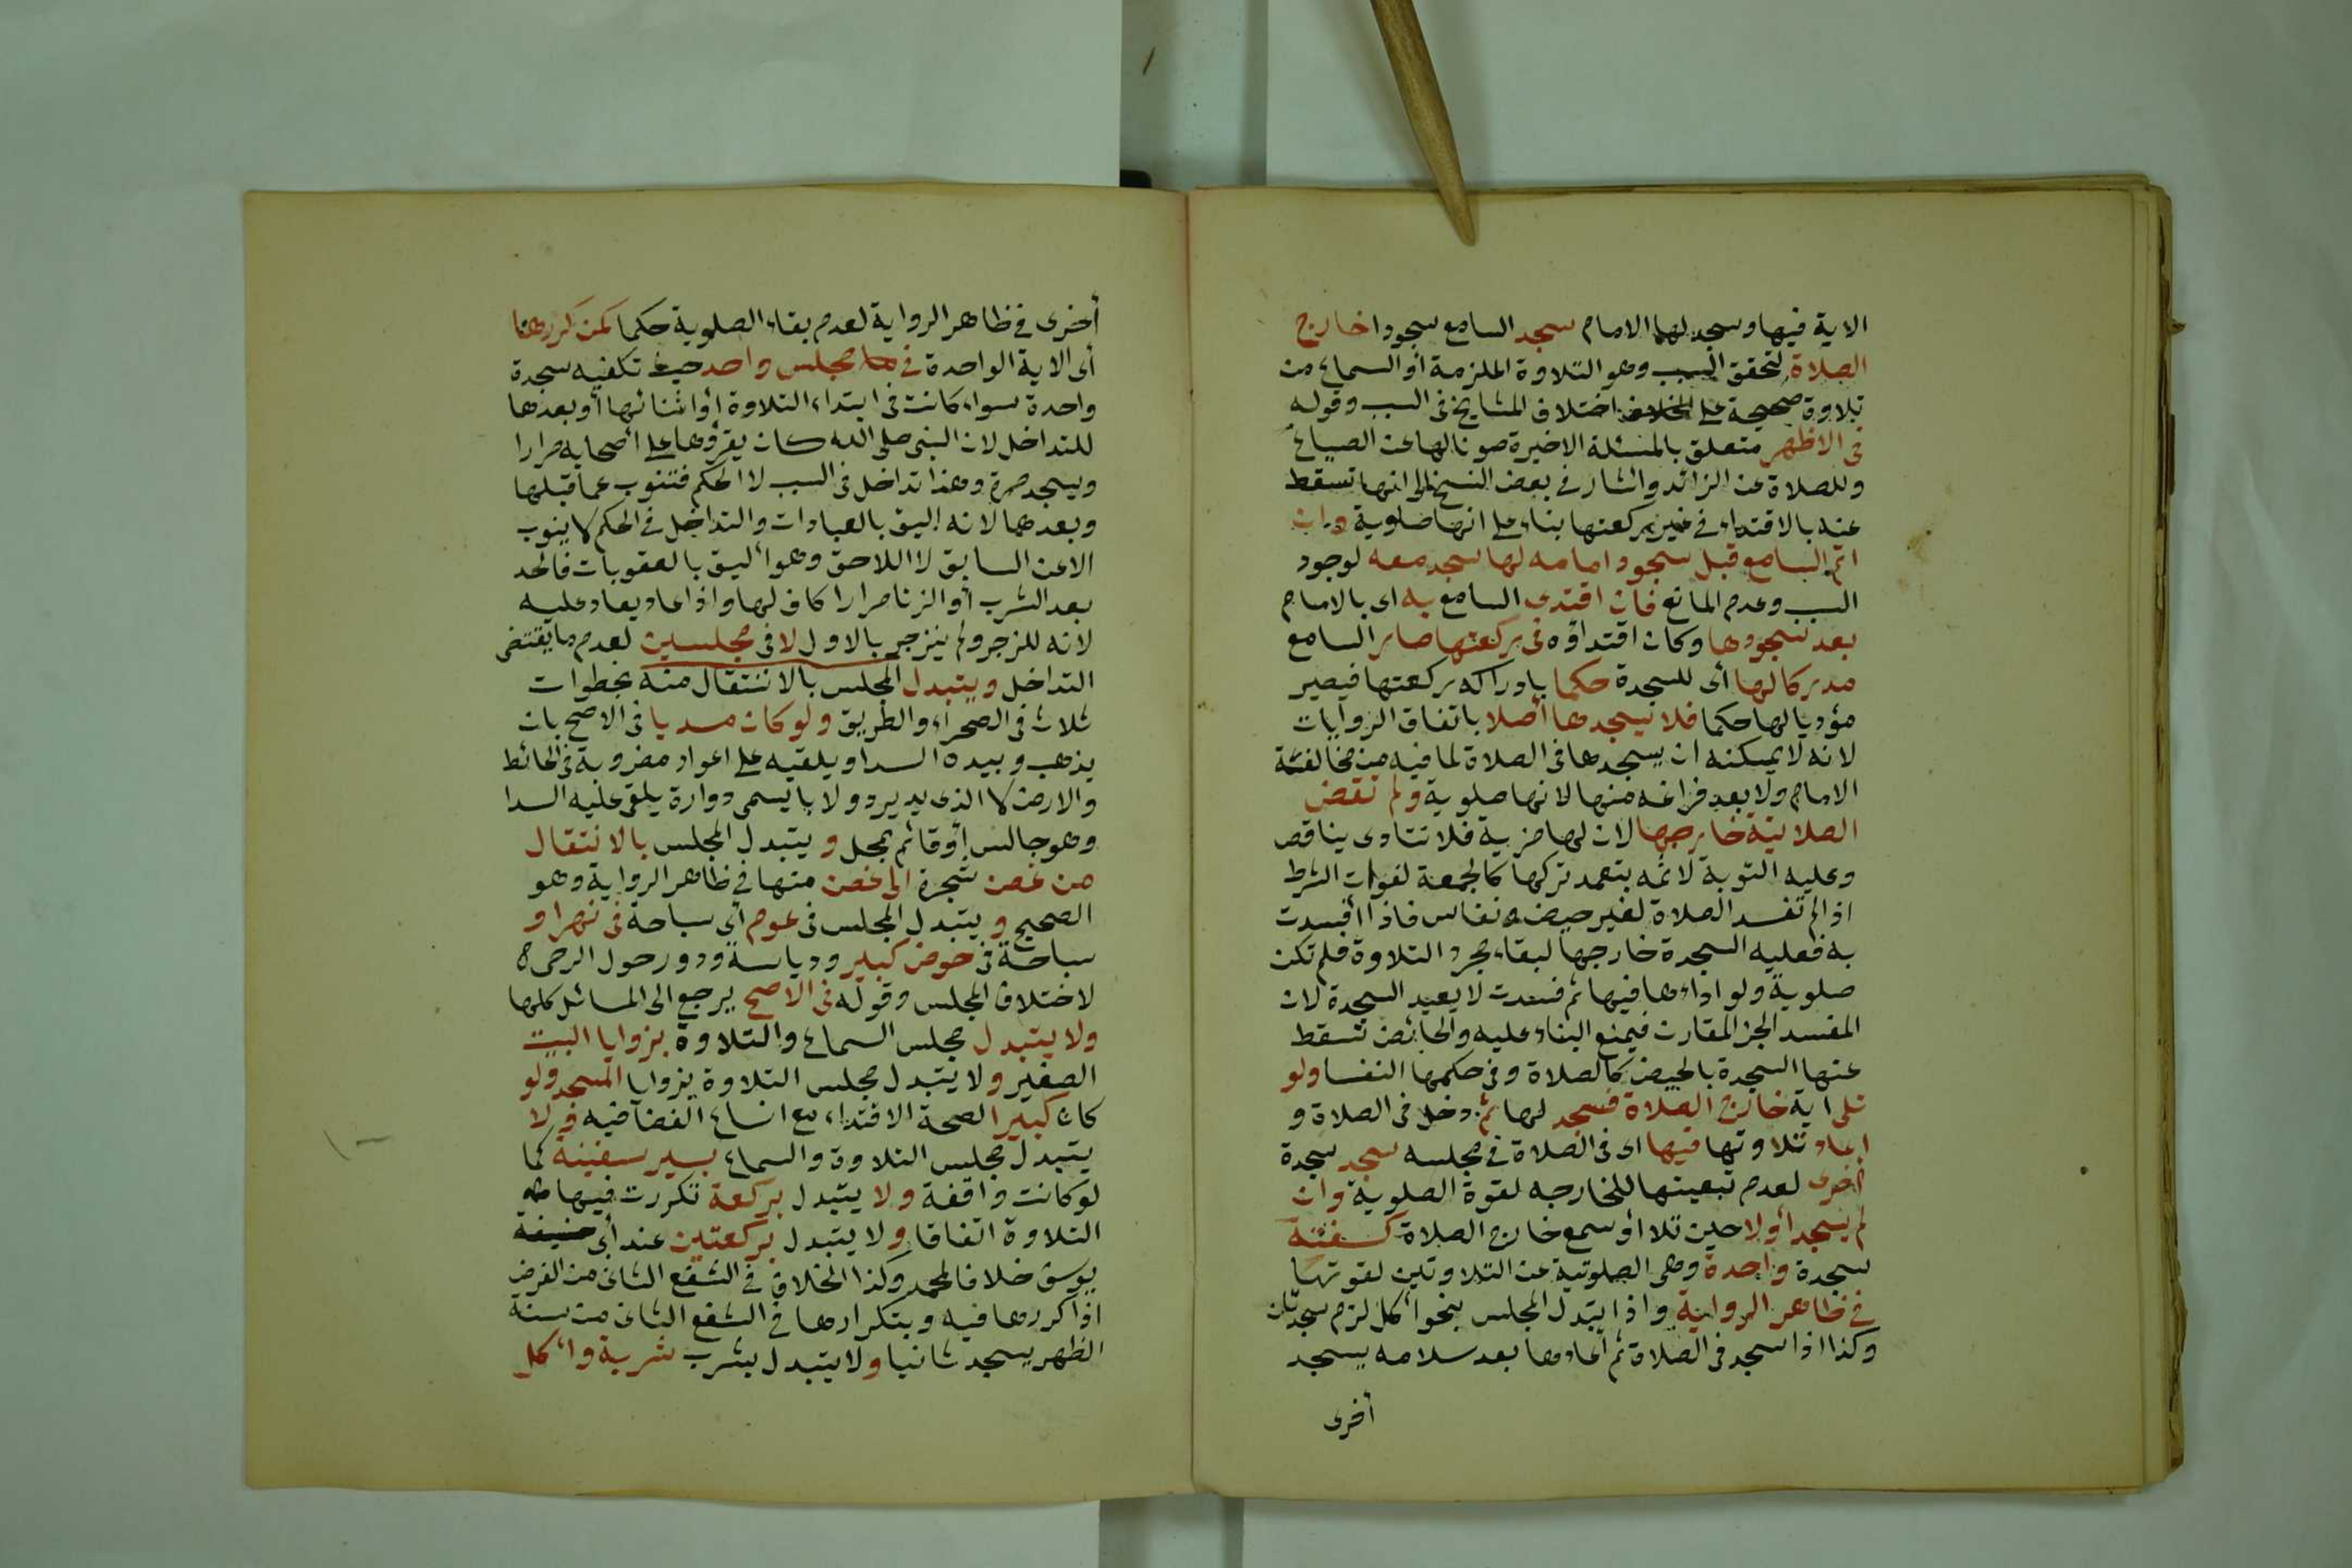 الاية فيها وسجد لها الامام سجد السامع سجودا خارج
الصلاة لتحقق السبب وهو التلاوة الملزمة أو السماع من
تلاوة صحيحة على اختلاف المشايخ فى السبب وقوله
فى الاظهر متعلق بالمسئلة الاخيرة صونا لها عن الضياع
وللصلاة عن الزائد واشار فى بعض النسخ الى انها تسقط
عنه بالاقتداء فى غير ركعتها بناء على انها صلوية وان
ائتم السامع قبل سجود امامه لها سجد معه لوجود
السبب وعدم المانع فان اقتدى السامع به اى بالامام
بعد سجودها وكان اقتداؤه فى ركعتها صار السامع
مدركا لها أى للسجدة حكما بادراكه ركعتها فيصير
مؤديا لها حكما فلا يسجدها أصلا باتفاق الروايات
لانه لا يمكنه ان يسجدها فى الصلاة لما فيه من مخالفة
الامام ولا بعد فراغه منها لانها صلوية ولم تقض
الصلاتية خارجها لان لها مزية فلا تتادى بناقص
وعليه التوبة لاثمه بتعمد تركها كالجمعة لفوات الشرط
اذا لم تفسد الصلاة لغير حيض ونفاس فاذا افسدت
به فعليه السجدة خارجها لبقاء مجرد التلاوة فلم تكن
صلوية ولو اداءها فيها ثم فسدت لا يعيد السجدة لان
المفسد الجز المقارن فيمنع البناء عليه والحائض تسقط
عنها السجدة بالحيض كالصلاة وفى حكمها النفسا ولو
تلى اية خارج الصلاة فسجد لها ثم دخل فى الصلاة و
اعاد تلاوتها فيها اى فى الصلاة فى مجلسه سجد سجدة
أخرى لعدم تبعيتها للخارجه لقوة الصلوية وان
لم يسجد أولا حين تلا أو سمع خارج الصلاة كفته
سجدة واحدة وهى الصلوتية عن التلاوتين لقوتها
فى ظاهر الرواية واذا تبدل المجلس بنحو أكل لزم سجدتان
وكذا اذا سجد فى الصلاة ثم أعادها بعد سلامه يسجد
أخرى
أخرى فى ظاهر الرواية لعدم بقاء الصلوية حكما كمن كررها
أى الاية الواحدة فى مجلس واحد حيث تكفيه سجدة
واحدة سواء كانت فى ابتداء التلاوة أو اثنائها أو بعدها
للتداخل لان النبى صلى الله كان يقرؤها على أصحابه مرارا
ويسجد مرة وهذا تداخل فى السبب لا الحكم فتنوب عما قبلها
وبعدها لانه اليق بالعبادات والتداخل فى الحكم لا ينوب
الا عن السابق لا اللاحق وهو أليق بالعقوبات فالحد
بعد الشرب أو الزنا مرارا كاف لها واذا عاد يعاد عليه
لانه للزجر ولم ينزجر بالاول لا فى مجلسين لعدم ما يقتضى
التداخل ويتبدل المجلس بالانتقال منه بخطوات
ثلاث فى الصحراء والطريق ولو كان مسديا فى الاصح بان
يذهب وبيده السدا ويلقيه على اعواد مضروبة فى الحائط
والارض لا الذى يدير دولابا يسمى دوارة يلقى عليه السدا
وهو جالس أو قائم بمحل ويتبدل المجلس بالانتقال
من غصن شجرة الى غصن منها فى ظاهر الرواية وهو
الصحيح ويتبدل المجلس فى عوم أى سباحة فى نهر او
سباحة فى حوض كبير ودياسة ودور حول الرحى
لاختلاف المجلس وقوله فى الاصح يرجع الى المسائل كلها
ولا يتبدل مجلس السماع والتلاوة بزوايا البيت
الصغير ولا يتبدل مجلس التلاوة بزوايا المسجد ولو
كان كبيرا لصحة الاقتداء مع اتساع الفضا فيه ولا
يتبدل مجلس التلاوة والسماع بسير سفينة كما
لو كانت واقفة ولا يتبدل بركعة تكررت فيها
التلاوة اتفاقا ولا يتبدل بركعتين عند أبى
يوسف خلافا لمحمد وكذا الخلاف فى الشفع الثانى من الفرض
اذا كررها فيه وبتكرارها فى الشفع الثانى من سنة
الظهر يسجد ثانيا ولا يتبدل بشرب شربة واكل